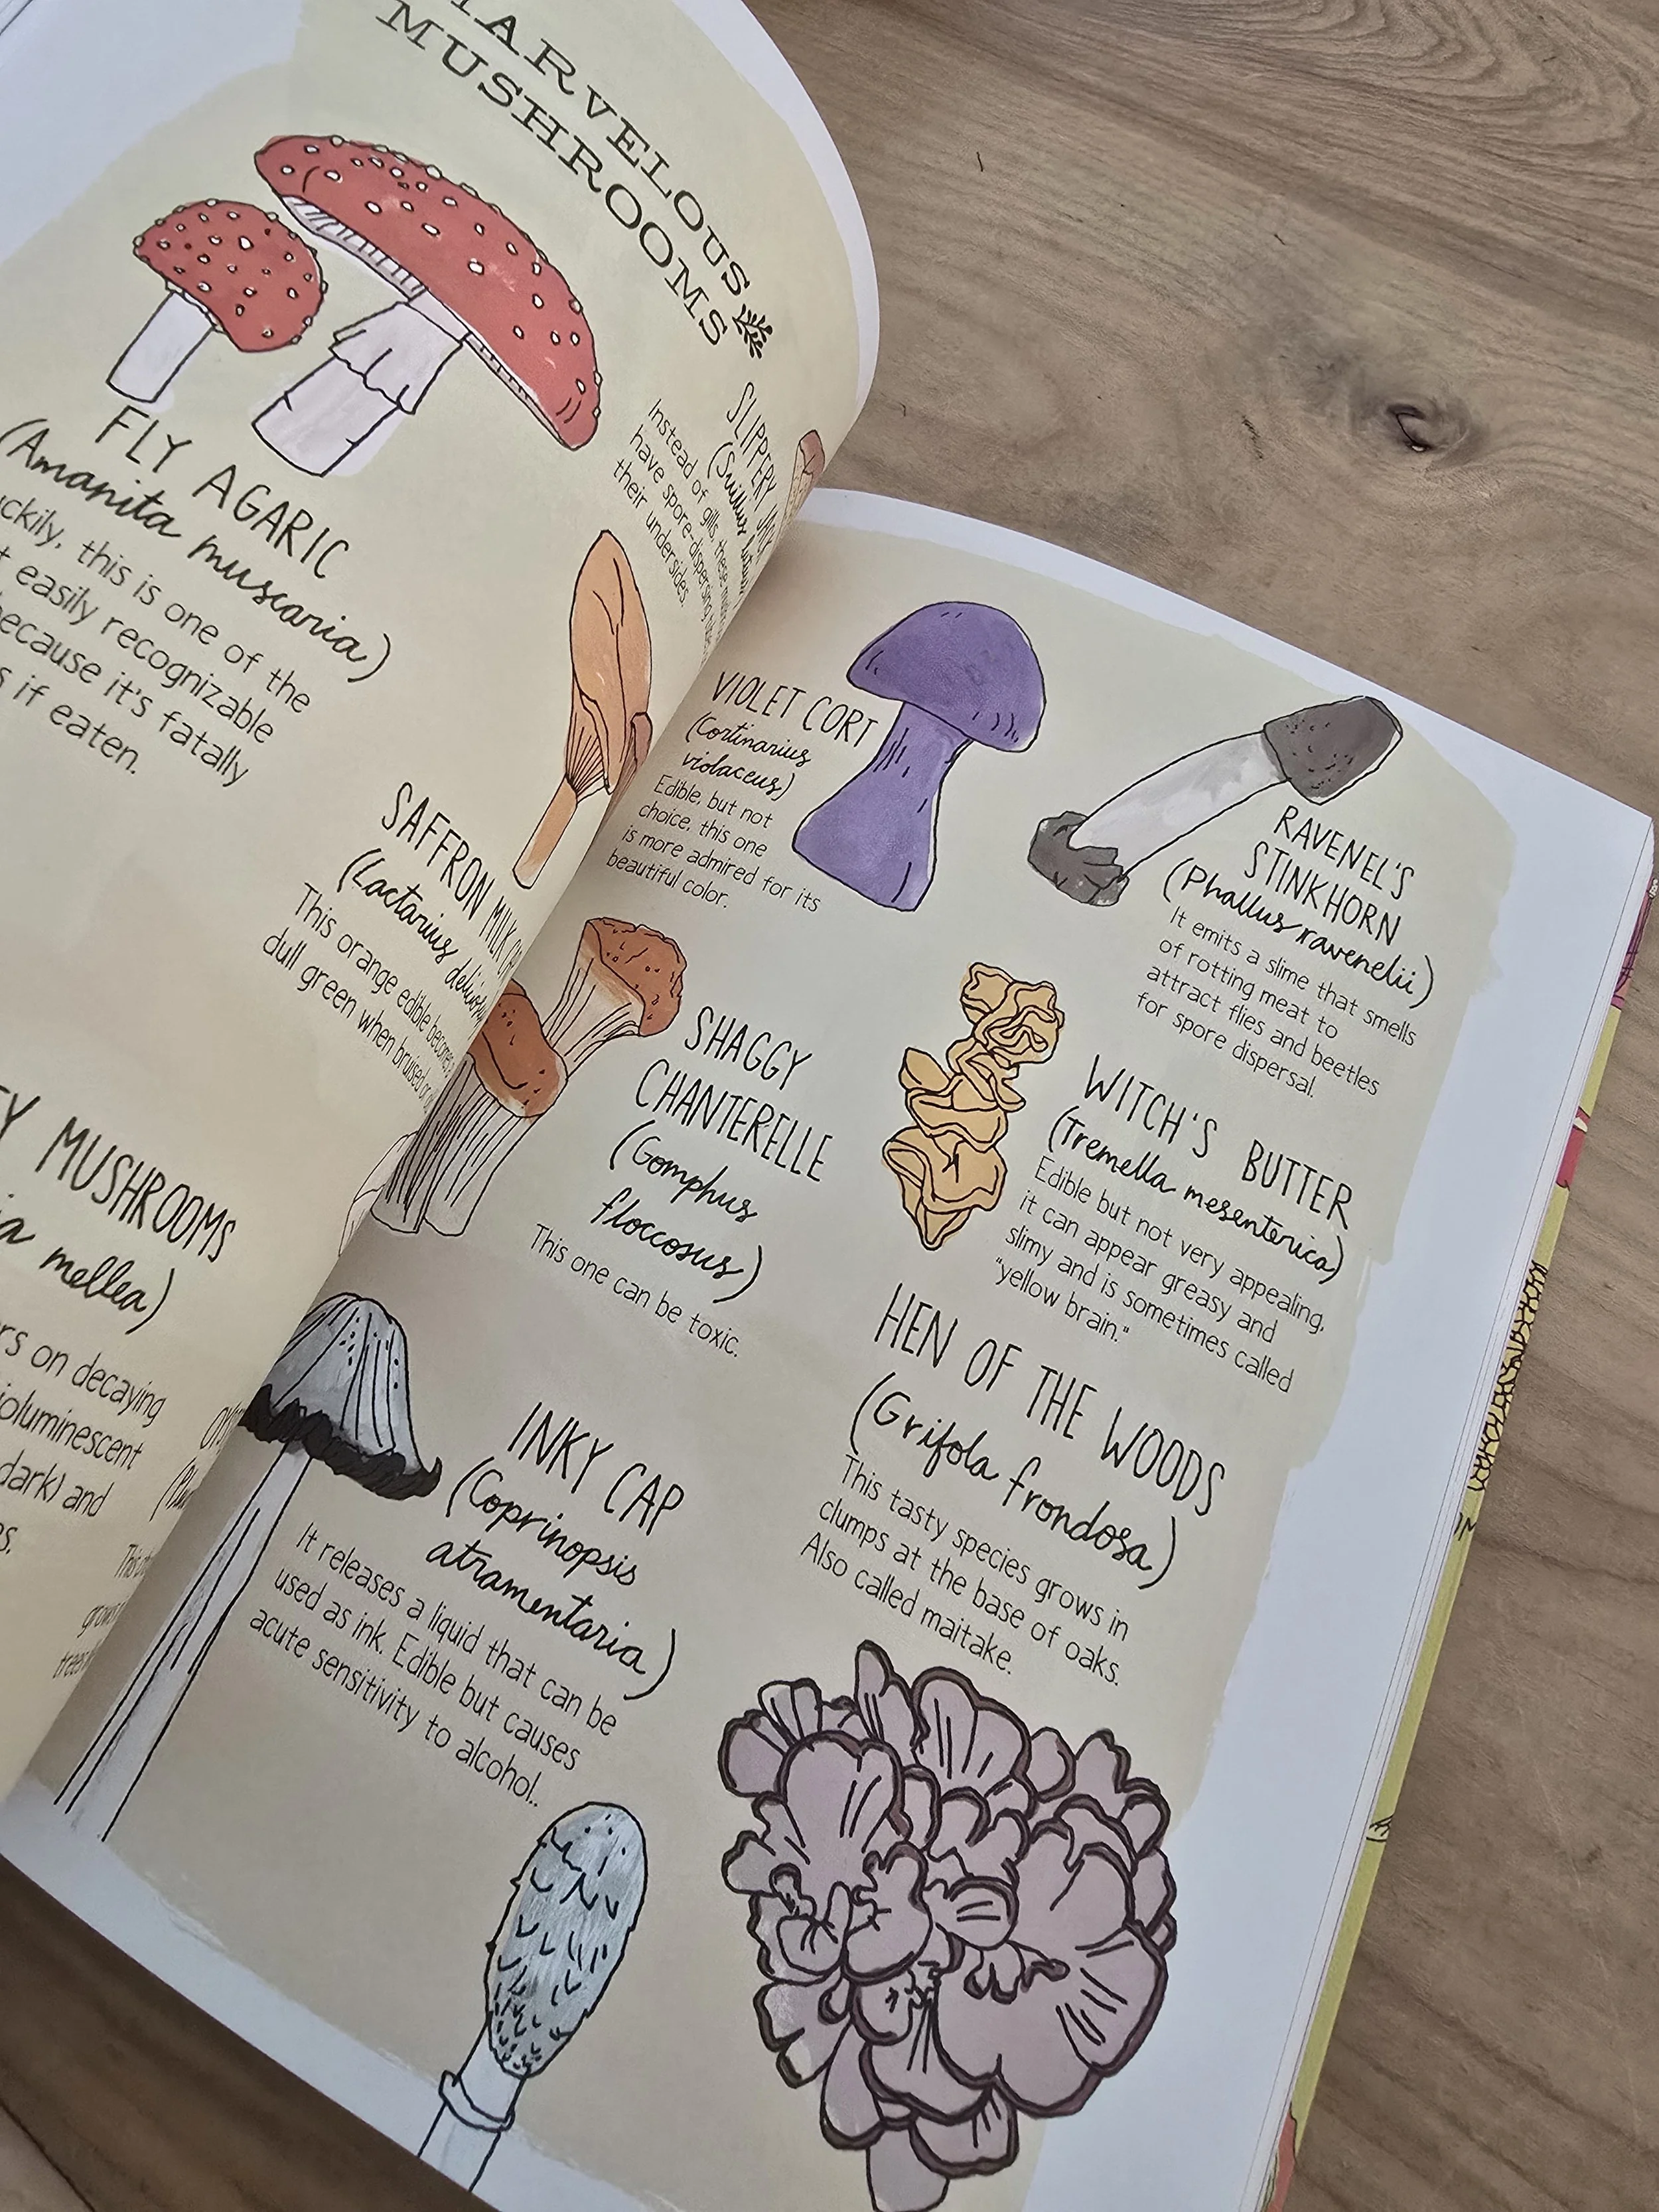 MARVELOUS
MUSHROOMS
FLY AGARIC
(Amanita muscaria)
this is one of the
easily recognizable
because it's fatally
if eaten.
SLIPPERY JACK
(Suillus
Instead of gills, these
have spore-dispersing
their undersides.
SAFFRON MILK CAP
(Lactarius
This orange edible becomes
dull green when bruised or
MUSHROOMS
mellea)
on decaying
dark) and
VIOLET CORT
(Cortinarius
violaceus)
Edible, but not
choice, this one
is more admired for its
beautiful color.
RAVENEL'S
STINKHORN
(Phallus ravenelii)
It emits a slime that smells
of rotting meat to
attract flies and beetles
for spore dispersal.
SHAGGY
CHANTERELLE
(Gomphus
floccosus)
This one can be toxic.
WITCH'S BUTTER
(Tremella mesenterica)
Edible but not very appealing,
it can appear greasy and
slimy and is sometimes called
"yellow brain."
INKY CAP
(Coprinopsis
atramentaria)
It releases a liquid that can be
used as ink. Edible but causes
acute sensitivity to alcohol..
HEN OF THE WOODS
(Grifola frondosa)
This tasty species grows in
clumps at the base of oaks.
Also called maitake.